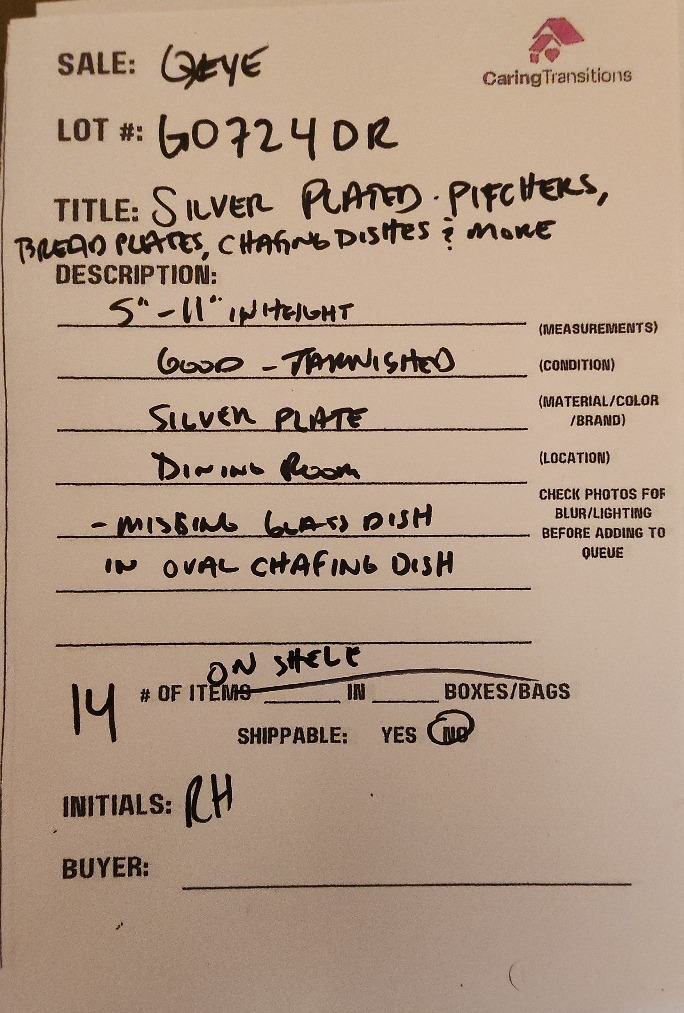 CaringTransitions
SALE:
LOT #: G0724DR
TITLE: SILVER PLATED PITCHERS,
BREAD PLATES, CHAFING DISHES & MORE
DESCRIPTION:
5" - 11" IN HEIGHT
(MEASUREMENTS)
GOOD - TARNISHED
(CONDITION)
SILVER PLATE
(MATERIAL/COLOR
/BRAND)
DINING ROOM
(LOCATION)
CHECK PHOTOS FOR
BLUR/LIGHTING
BEFORE ADDING TO
QUEUE
- MISSING GLASS DISH
IN OVAL CHAFING DISH
ON SHELF
14 # OF ITEMS ____ IN ____ BOXES/BAGS
SHIPPABLE: YES NO
INITIALS: RH
BUYER: